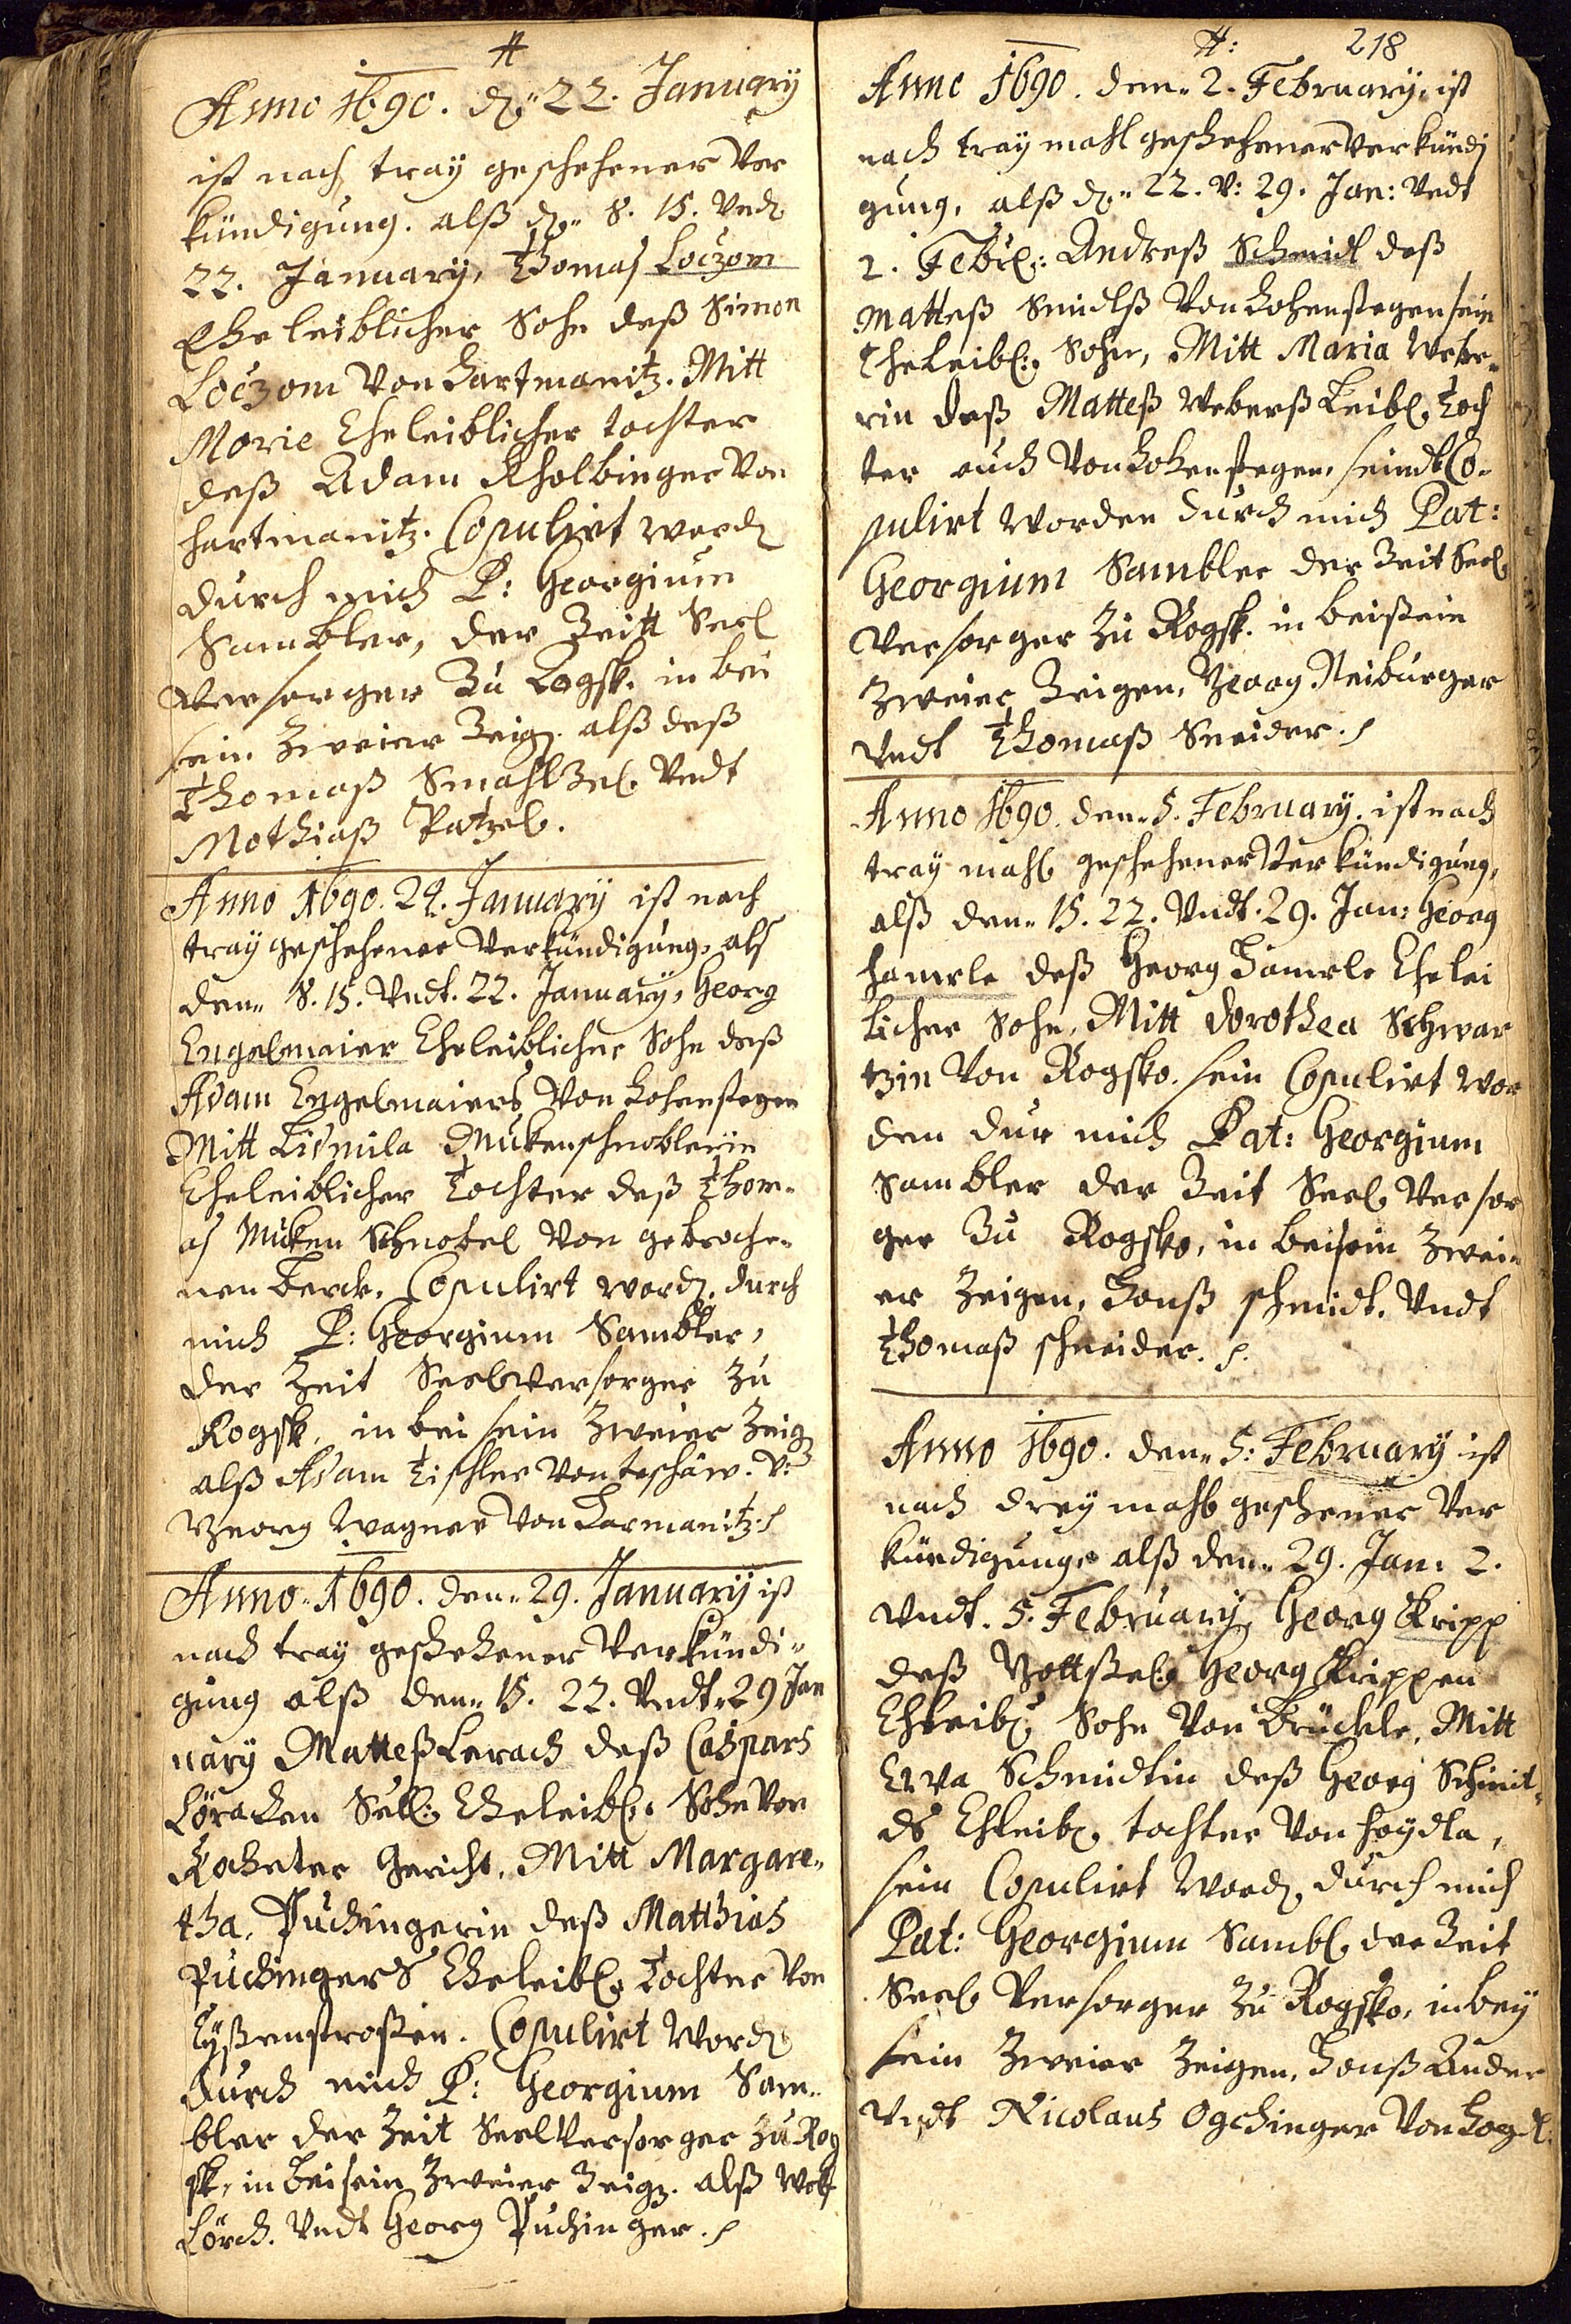 Anno 1690. dẽ 22. January
ist nach tray geschehener Ver
kündigung. alß dẽ 8. 15. Vnd
22. January, Thomas Loczom
Eheleiblicher Sohn deß Simon
Loczom Von Hartmanitz. Mitt
Marie Eheleiblicher tochter
deß Adam Kholbinger Von
hartmanitz. Copulirt word
durch mich P: Georgium
Sambler, der Zeitt Seel
Versorger Zu Rogsk. in bei
sein Zweier Zeig. alß deß
Thomaß Smahlzel Vndt
Mathiaß Patzel.
Anno 1690. 24. January ist nach
tray geschehener Verkündigung, als
den 8. 15. Vndt. 22. January, Georg
Engelmaier Eheleiblicher Sohn deß
Adam Engelmaiers Von Hohenstegen
Mitt Lidmila Mukenschnoblerin
Eheleiblicher Tochter deß Thom-
as Muken Schnobel Von gebroche-
nen berck. Copulirt word. durch
mich P: Georgium Sambler,
der Zeit Seelversorger Zu
Rogsk. in bei sein Zweier Zeig
alß Adam Tischler Von teschaw. V:
Georg Wagner Von Harmanitz.
Anno. 1690. den 29. January ist
nach tray geschehener Verkündi-
gung alß den 15. 22. Vndt. 29 Jan
uary Matteß Lerach deß Caspars
Lörachen Sell: Eheleibl: Sohn Von
Kocheter Gericht. Mitt Margare-
tha. Puchingerin deß Matthias
Puchingers Eheleibl. Tochter Von
Eyßenstroßen. Copulirt Word
durch mich P: Georgium Sam-
bler der Zeit Seelversorger Zu Rog
sk, in beisein Zweier Zeig. alß Wolf
Lörch. Vndt Georg Puchinger.
218
Anno 1690. den 2. February, ist
nach tray mahl geschehener verkündi
gung, alß dẽ 22. V: 29. Jan: Vndt
2. Febr: Andreß Schmidl deß
Matteß Smidlß Von Hohenstegen sein
Eheleibl: Sohn, Mitt Maria Webe-
rin deß Matteß Weberß Leibl. Toch
ter auch Von Hohenstegen, seindt Co-
pulirt worden durch mich Pat:
Georgium Sambler der Zeit Seel
Versorger Zu Rogsk. in beißein
Zweier Zeigen, Georg Neiburger
Vndt Thomaß Sneider.
Anno 1690. den 5. February. ist nach
tray mahl geschehener Verkündigung,
alß den 15. 22. Vndt. 29. Jan: Georg
Hamrle deß Georg Hamrle Ehelei
licher Sohn, Mitt Dorothea Schwar
tzin Von Rogsko. sein Copulirt wor
den dur mich Pat: Georgium
Sambler der Zeit Seel Versor
ger Zu Rogsko, in beisein Zwei-
er Zeigen, Hanß schmidt. Vndt
Thomaß schneider.
Anno 1690. den 5: February ist
nach drey mahl geschener Ver
kündigung, alß den 29. Jan: 2.
Vndt. 5. February, Georg Kripp
deß Gottßel: Georg Krippen
Ehleibl: Sohn Von Brückle, Mitt
Ewa Schmidtin deß Georg Schmit-
ds Ehleibl. tochter Von Haydla,
sein Copulirt Word durch mich
Pat: Georgium Sambl. der Zeit
Seel Versorger Zu Rogsko, in bey
sein Zweier Zeigen, Hanß Ander
Vndt Nicolaus Ogchinger Von